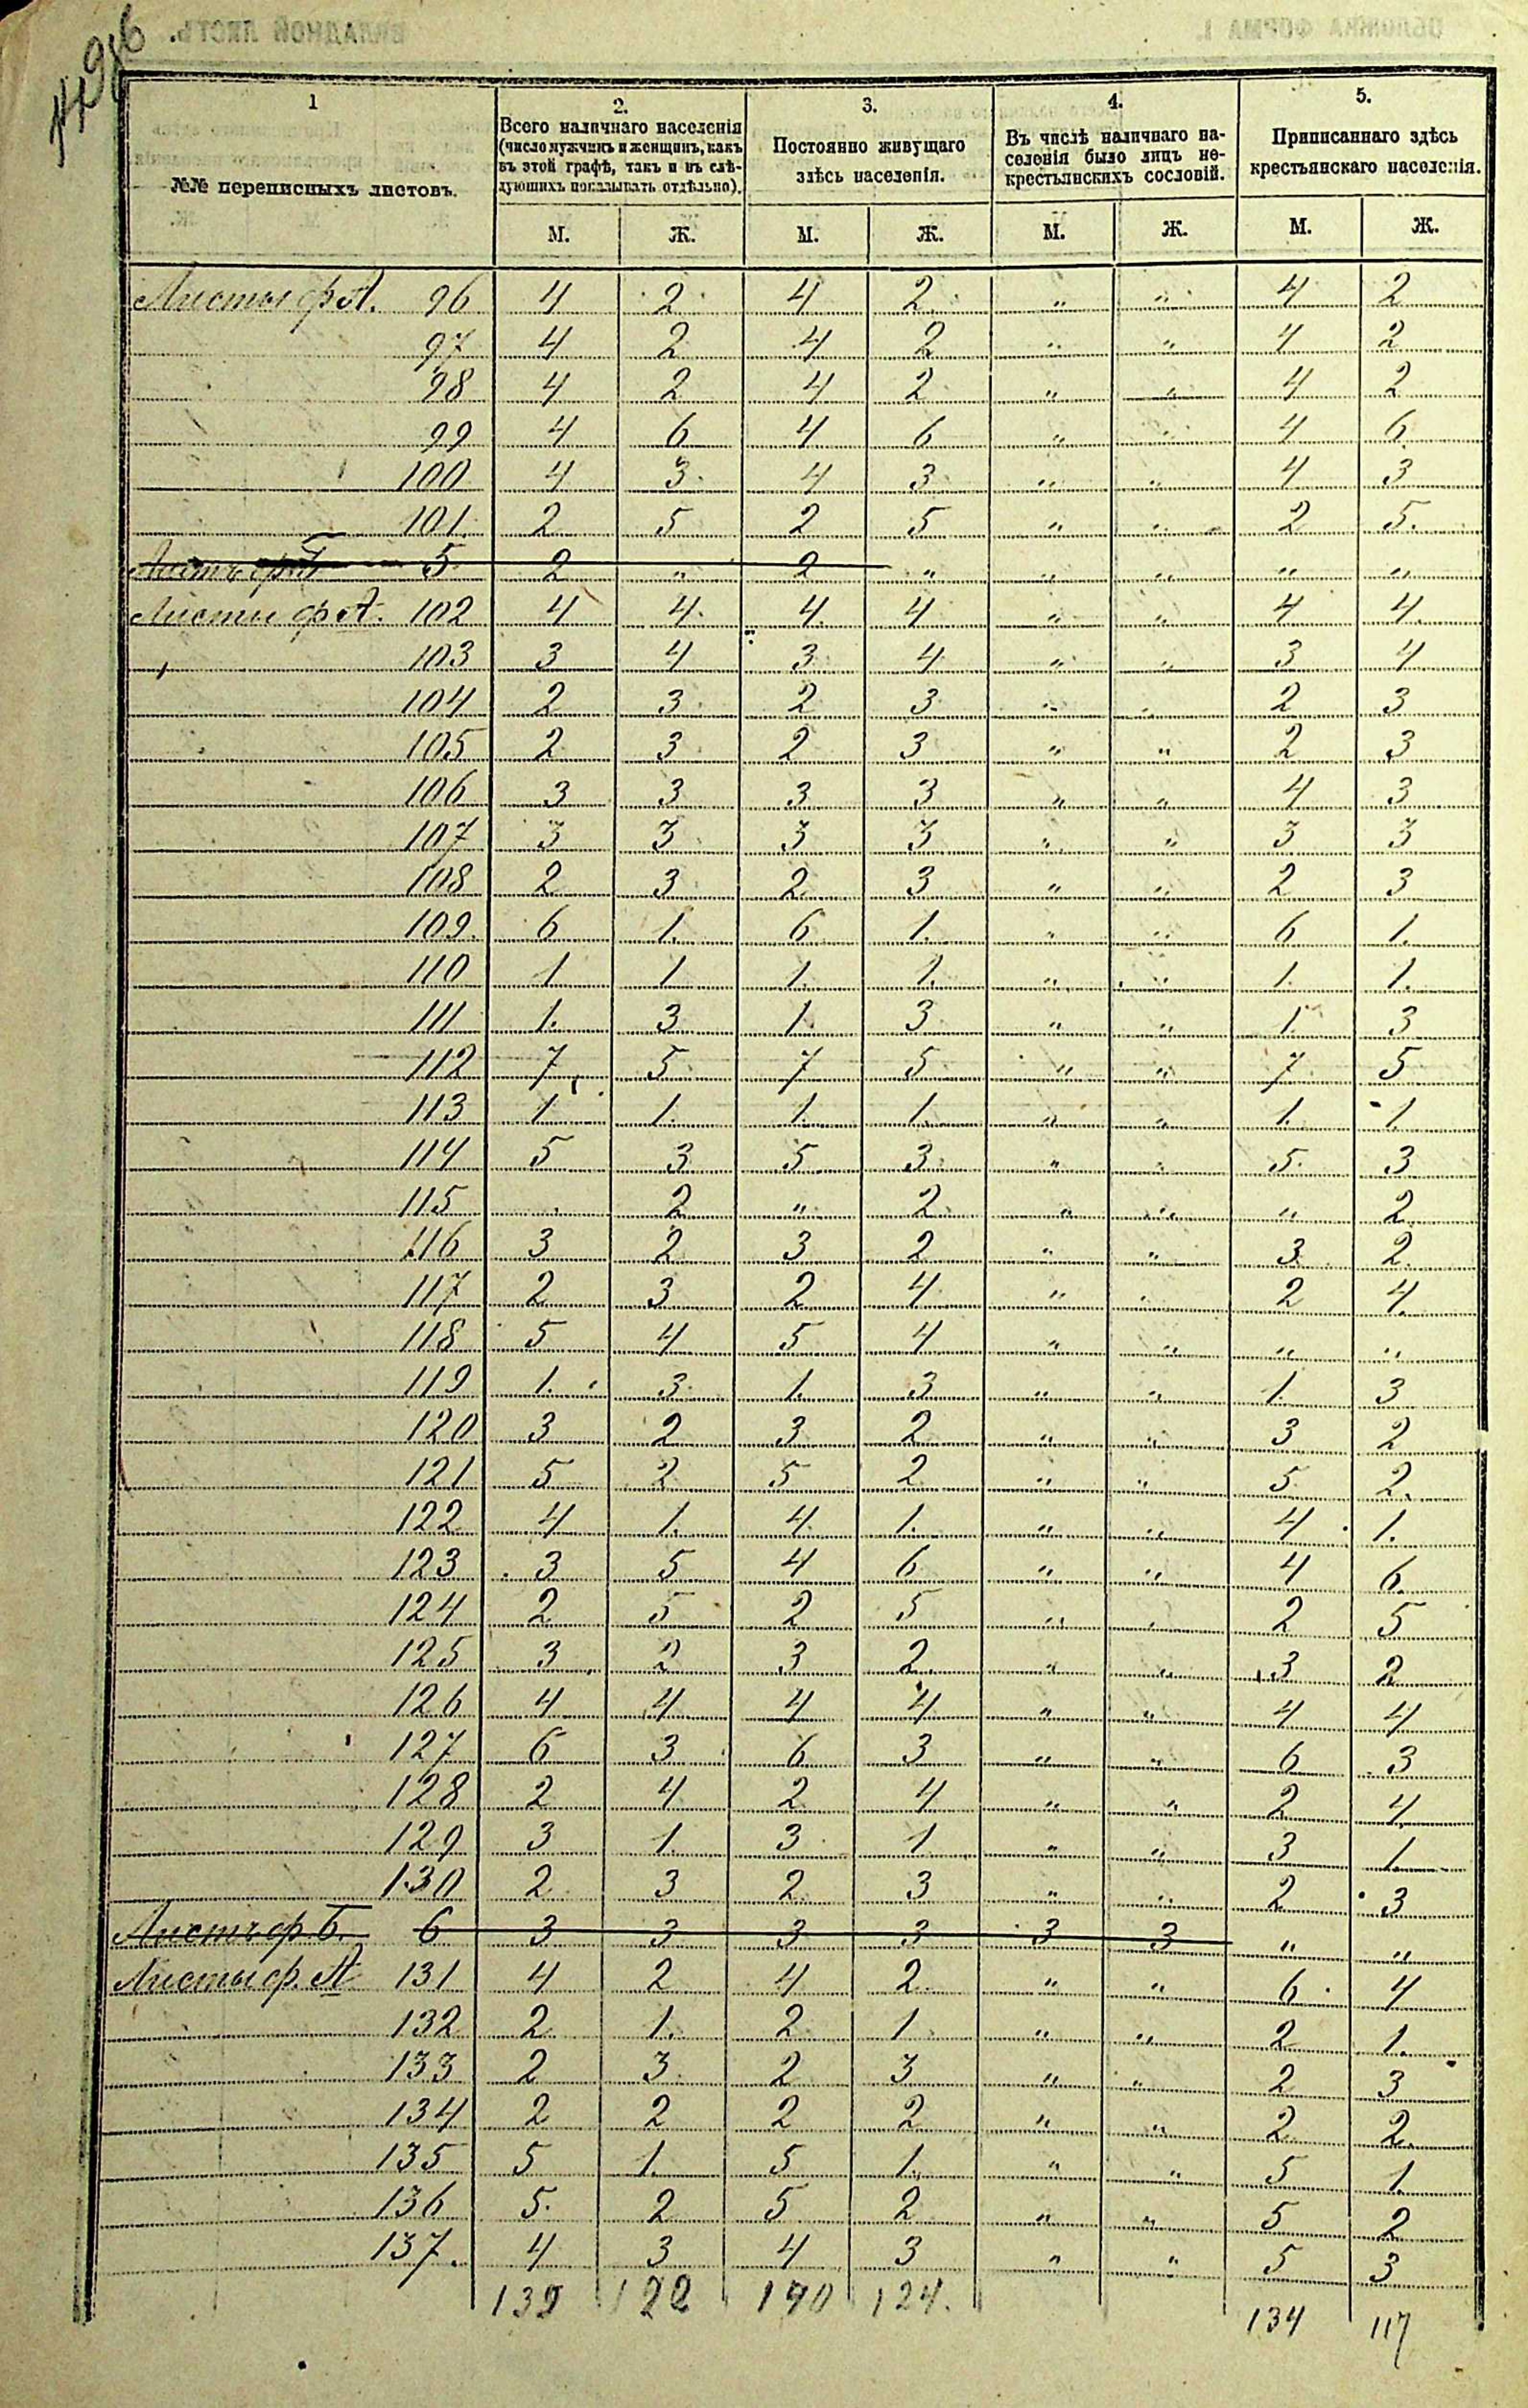 ВКЛАДНОЙ ЛИСТЪ.
ОБЛОЖКА ФОРМА I.
1
2.
3.
4.
5.
№№ переписныхъ листовъ.
Всего наличнаго населенія
(число мужчинъ и женщинъ, какъ
въ этой графѣ, такъ и въ слѣ-
дующихъ показывать отдѣльно).
Постоянно живущаго
здѣсь населенія.
Въ числѣ наличнаго на-
селенія было лицъ не-
крестьянскихъ сословій.
Приписаннаго здѣсь
крестьянскаго населенія.
М. Ж. М. Ж. М. Ж. М. Ж.
Листы ф А. 96 4 2 4 2 " " 4 2
97 4 2 4 2 " " 4 2
98 4 2 4 2 " " 4 2
99 4 6 4 6 " " 4 6
100 4 3 4 3 " " 4 3
101 2 5 2 5 " " 2 5
Листъ ф Б 5 2 " 2 " " " " "
Листы ф А. 102 4 4 4 4 " " 4 4
103 3 4 3 4 " " 3 4
104 2 3 2 3 " " 2 3
105 2 3 2 3 " " 2 3
106 3 3 3 3 " " 4 3
107 3 3 3 3 " " 3 3
108 2 3 2 3 " " 2 3
109 6 1 6 1 " " 6 1
110 1 1 1 1 " " 1 1
111 1 3 1 3 " " 1 3
112 7 5 7 5 " " 7 5
113 1 1 1 1 " " 1 1
114 5 3 5 3 " " 5 3
115 " 2 " 2 " " " 2
116 3 2 3 2 " " 3 2
117 2 3 2 4 " " 2 4
118 5 4 5 4 " " " "
119 1 3 1 3 " " 1 3
120 3 2 3 2 " " 3 2
121 5 2 5 2 " " 5 2
122 4 1 4 1 " " 4 1
123 3 5 4 6 " " 4 6
124 2 5 2 5 " " 2 5
125 3 2 3 2 " " 3 2
126 4 4 4 4 " " 4 4
127 6 3 6 3 " " 6 3
128 2 4 2 4 " " 2 4
129 3 1 3 1 " " 3 1
130 2 3 2 3 " " 2 3
Листъ ф Б. 6 3 3 3 3 3 3 " "
Листы ф. А 131 4 2 4 2 " " 6 4
132 2 1 2 1 " " 2 1
133 2 3 2 3 " " 2 3
134 2 2 2 2 " " 2 2
135 5 1 5 1 " " 5 1
136 5 2 5 2 " " 5 2
137. 4 3 4 3 " " 5 3
139 122 140 124. 134 117